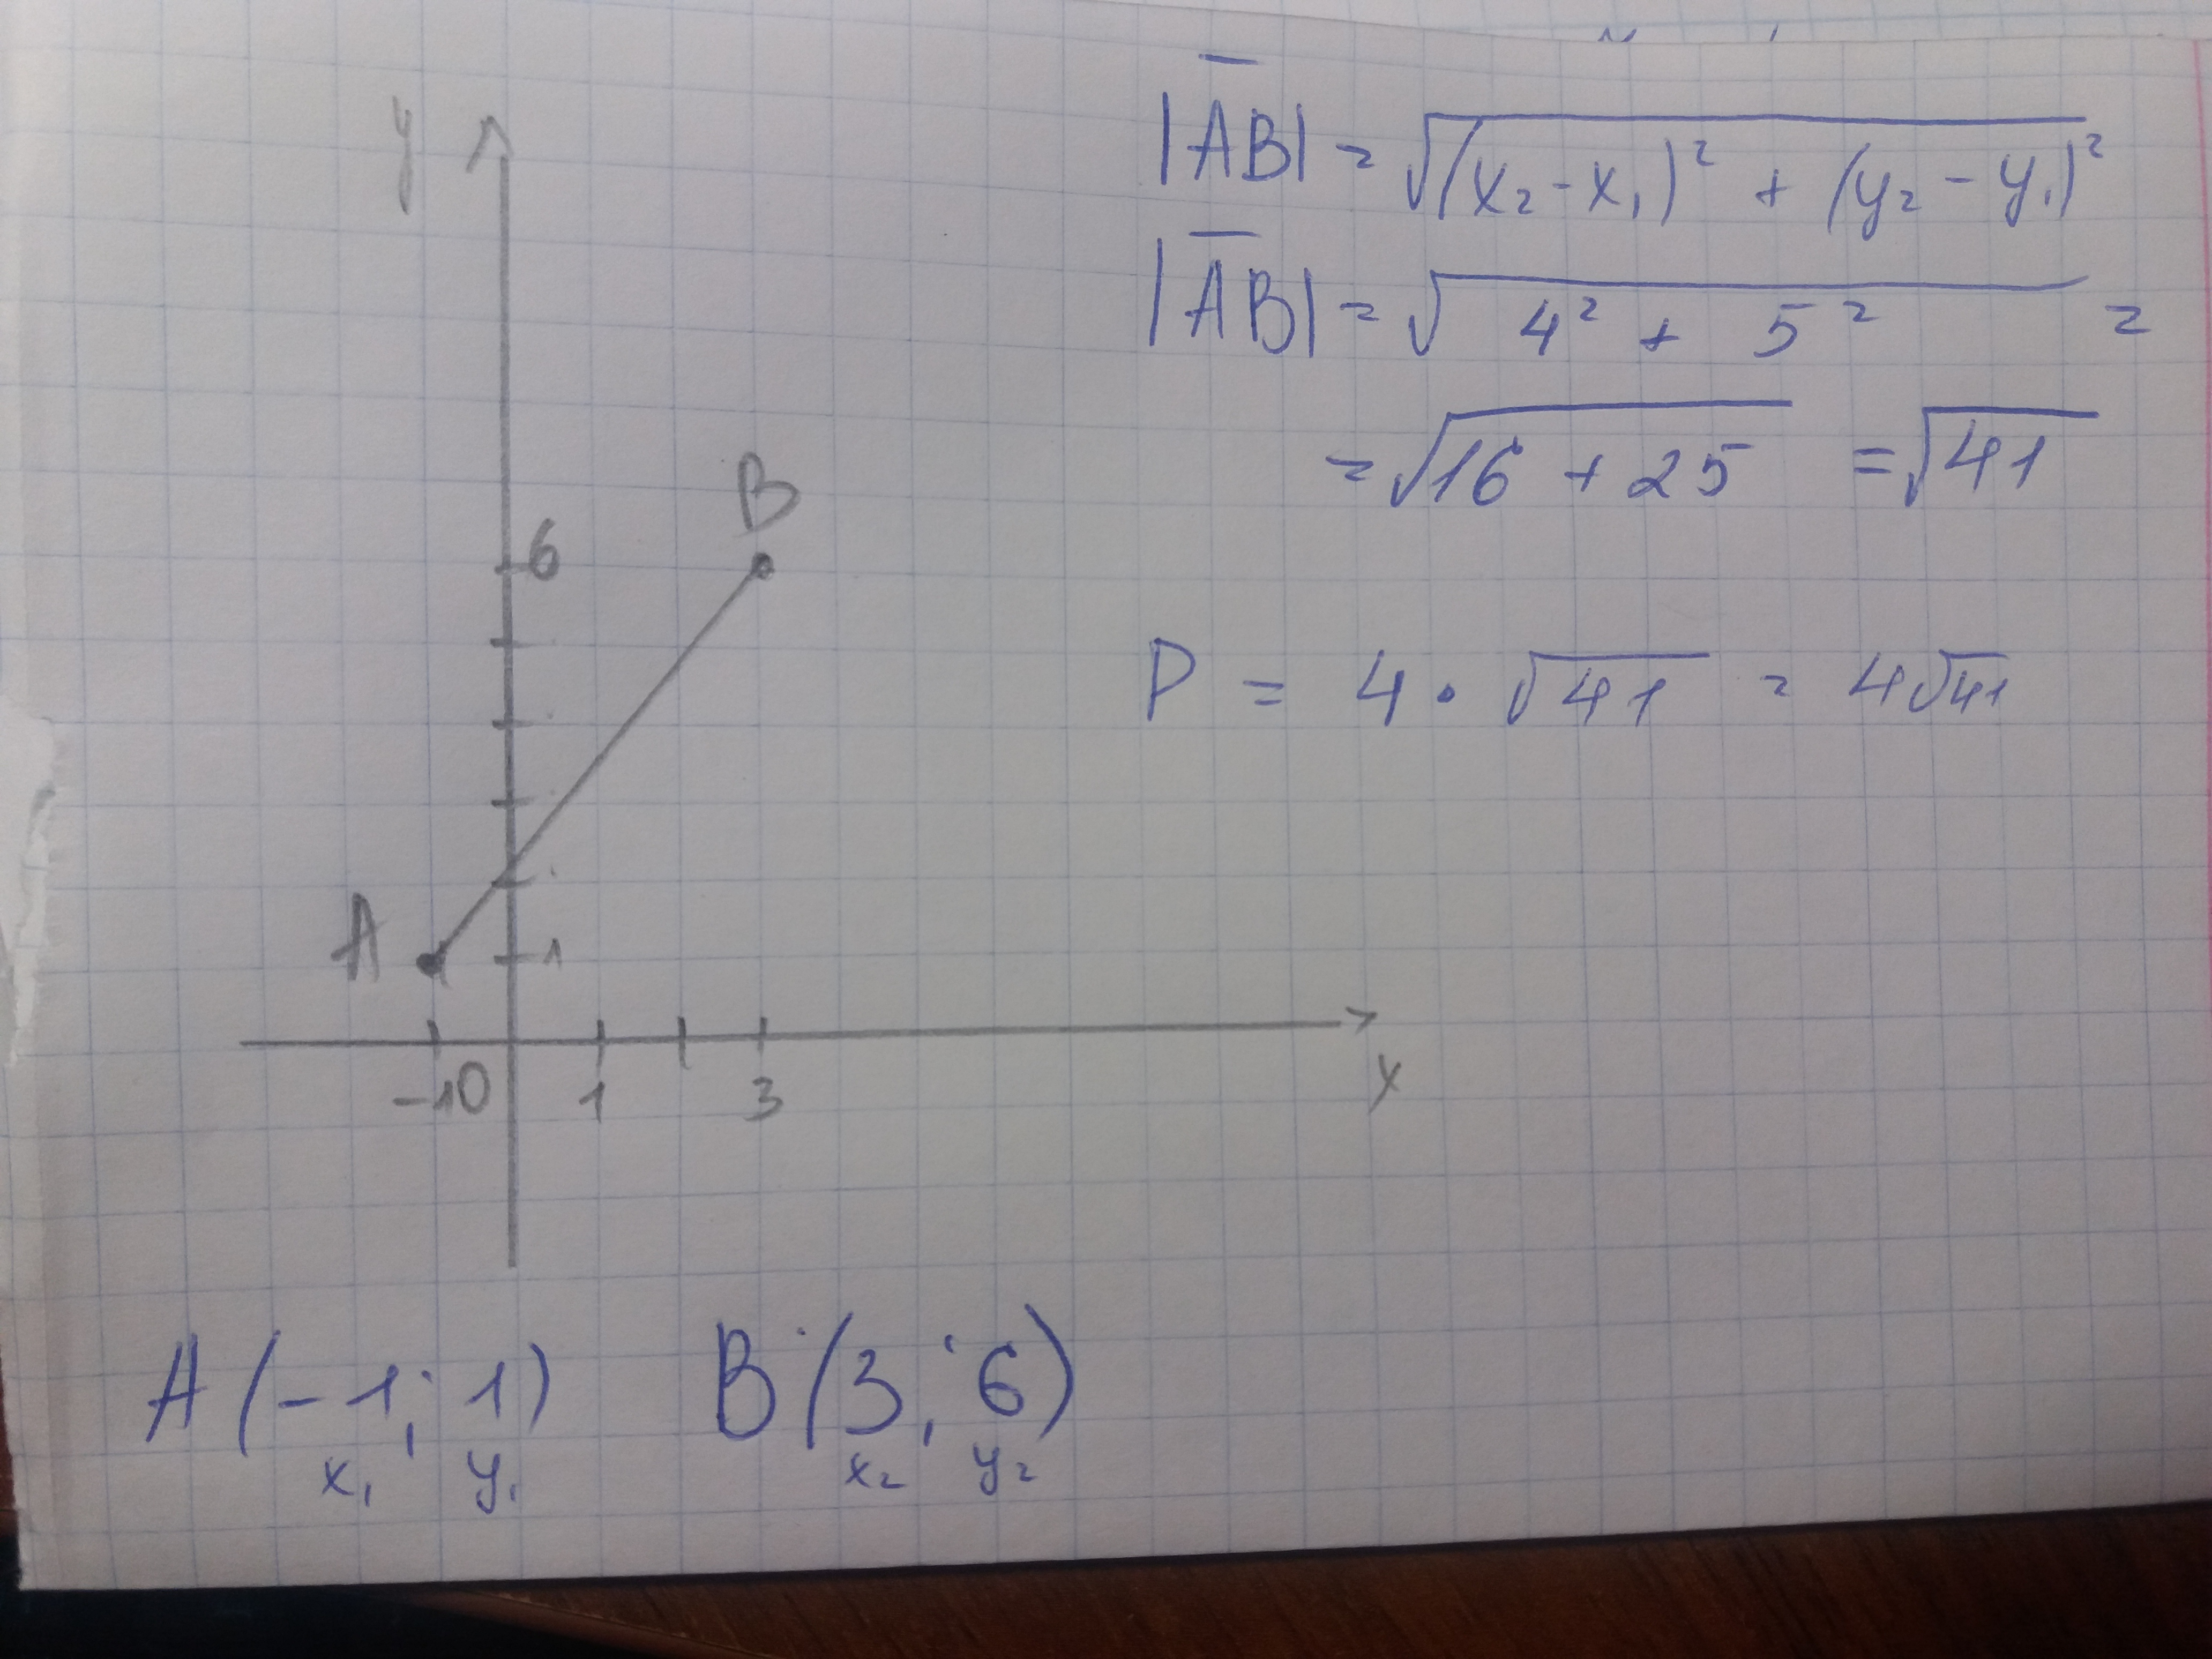 |AB| = √(x₂-x₁)² + (y₂-y₁)²
|AB| = √4² + 5² =
= √16 + 25 = √41
P = 4 · √41 = 4√41
y
B
6
A
1
-1 0 1 3
x
A (-1; 1) B (3; 6)
x₁ y₁ x₂ y₂